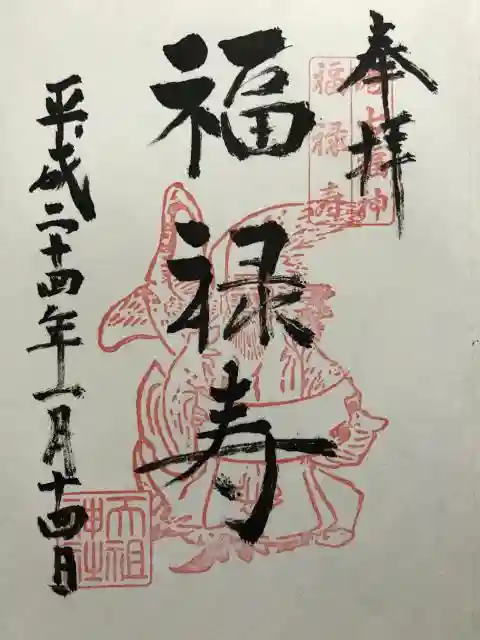 奉拝
七福神
福禄寿
福禄寿
平成二十四年一月十四日
天祖
神社